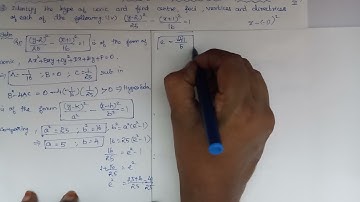 ② Identify the type of conic and find centre, foci, vertices and directrices
of each of the following: (v) (y-2)²/25 - (x+1)²/16 = 1
Soln
(y-2)²/25 - (x+1)²/16 = 1 is of the form of
conic, Ax²+Bxy+Cy²+Dx+Ey+F=0.
A = -1/16, B = 0, C = 1/25 sub in
B²-4AC = 0-4(-1/16)(1/25) > 0 ⇒ Hyperbola
is of the form (y-k)²/a² - (x-h)²/b² = 1
Comparing, a² = 25, b² = 16, b² = a²(e²-1)
⇒ a = 5, b = 4 16 = 25(e²-1)
16/25 = e²-1
1+16/25 = e²